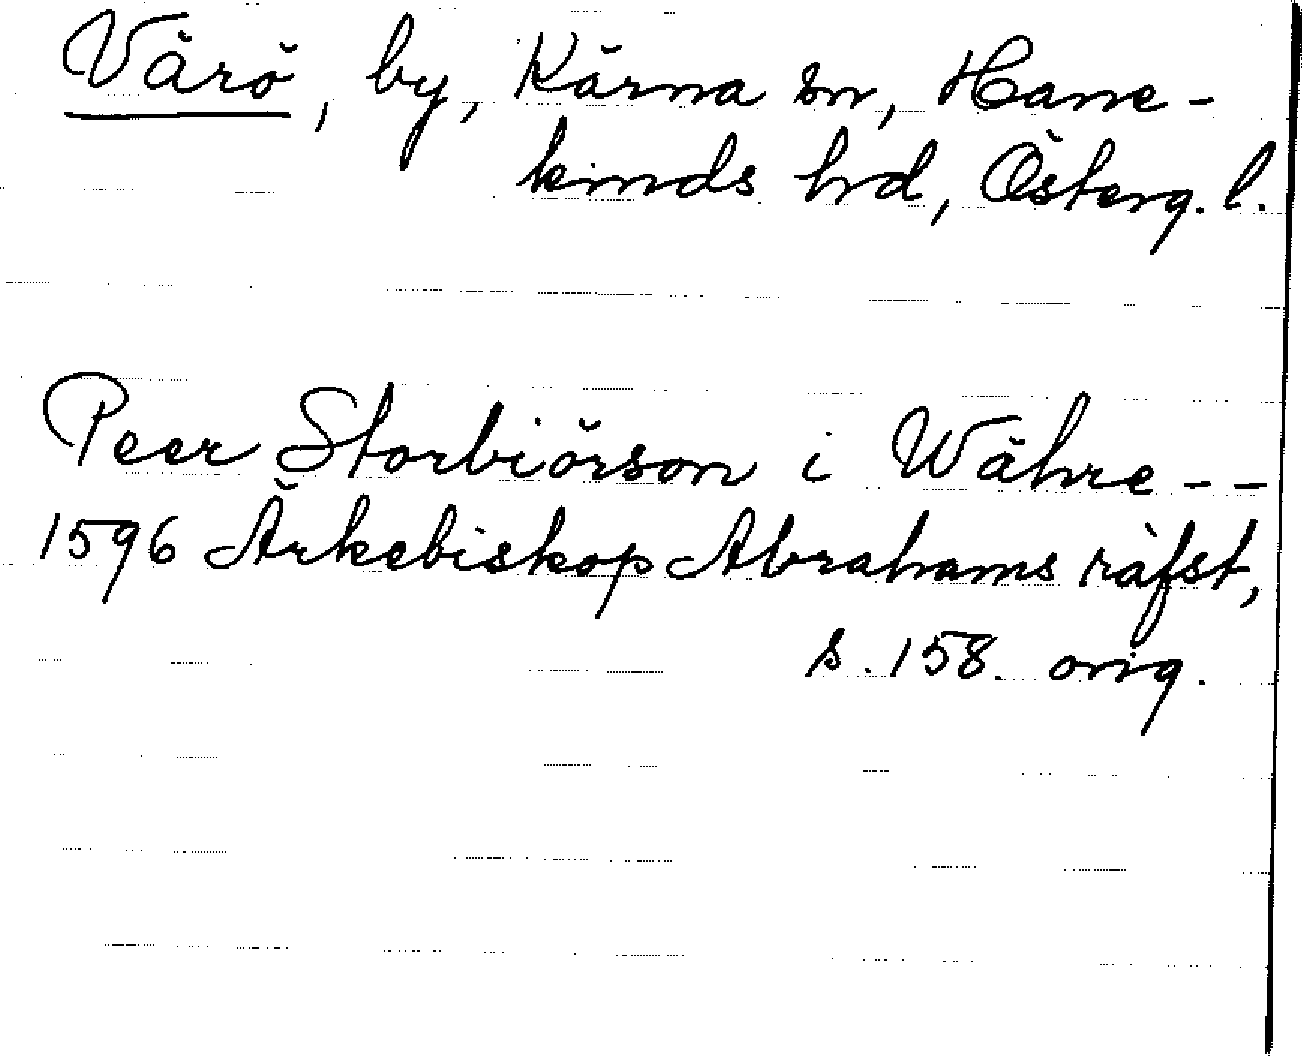 Värö, by, Kärna sn, Hane-
kinds hrd, Österg. l.
Peer Storbiörson i Währe --
1596 Ärkebiskop Abrahams räfst,
s. 158. orig.